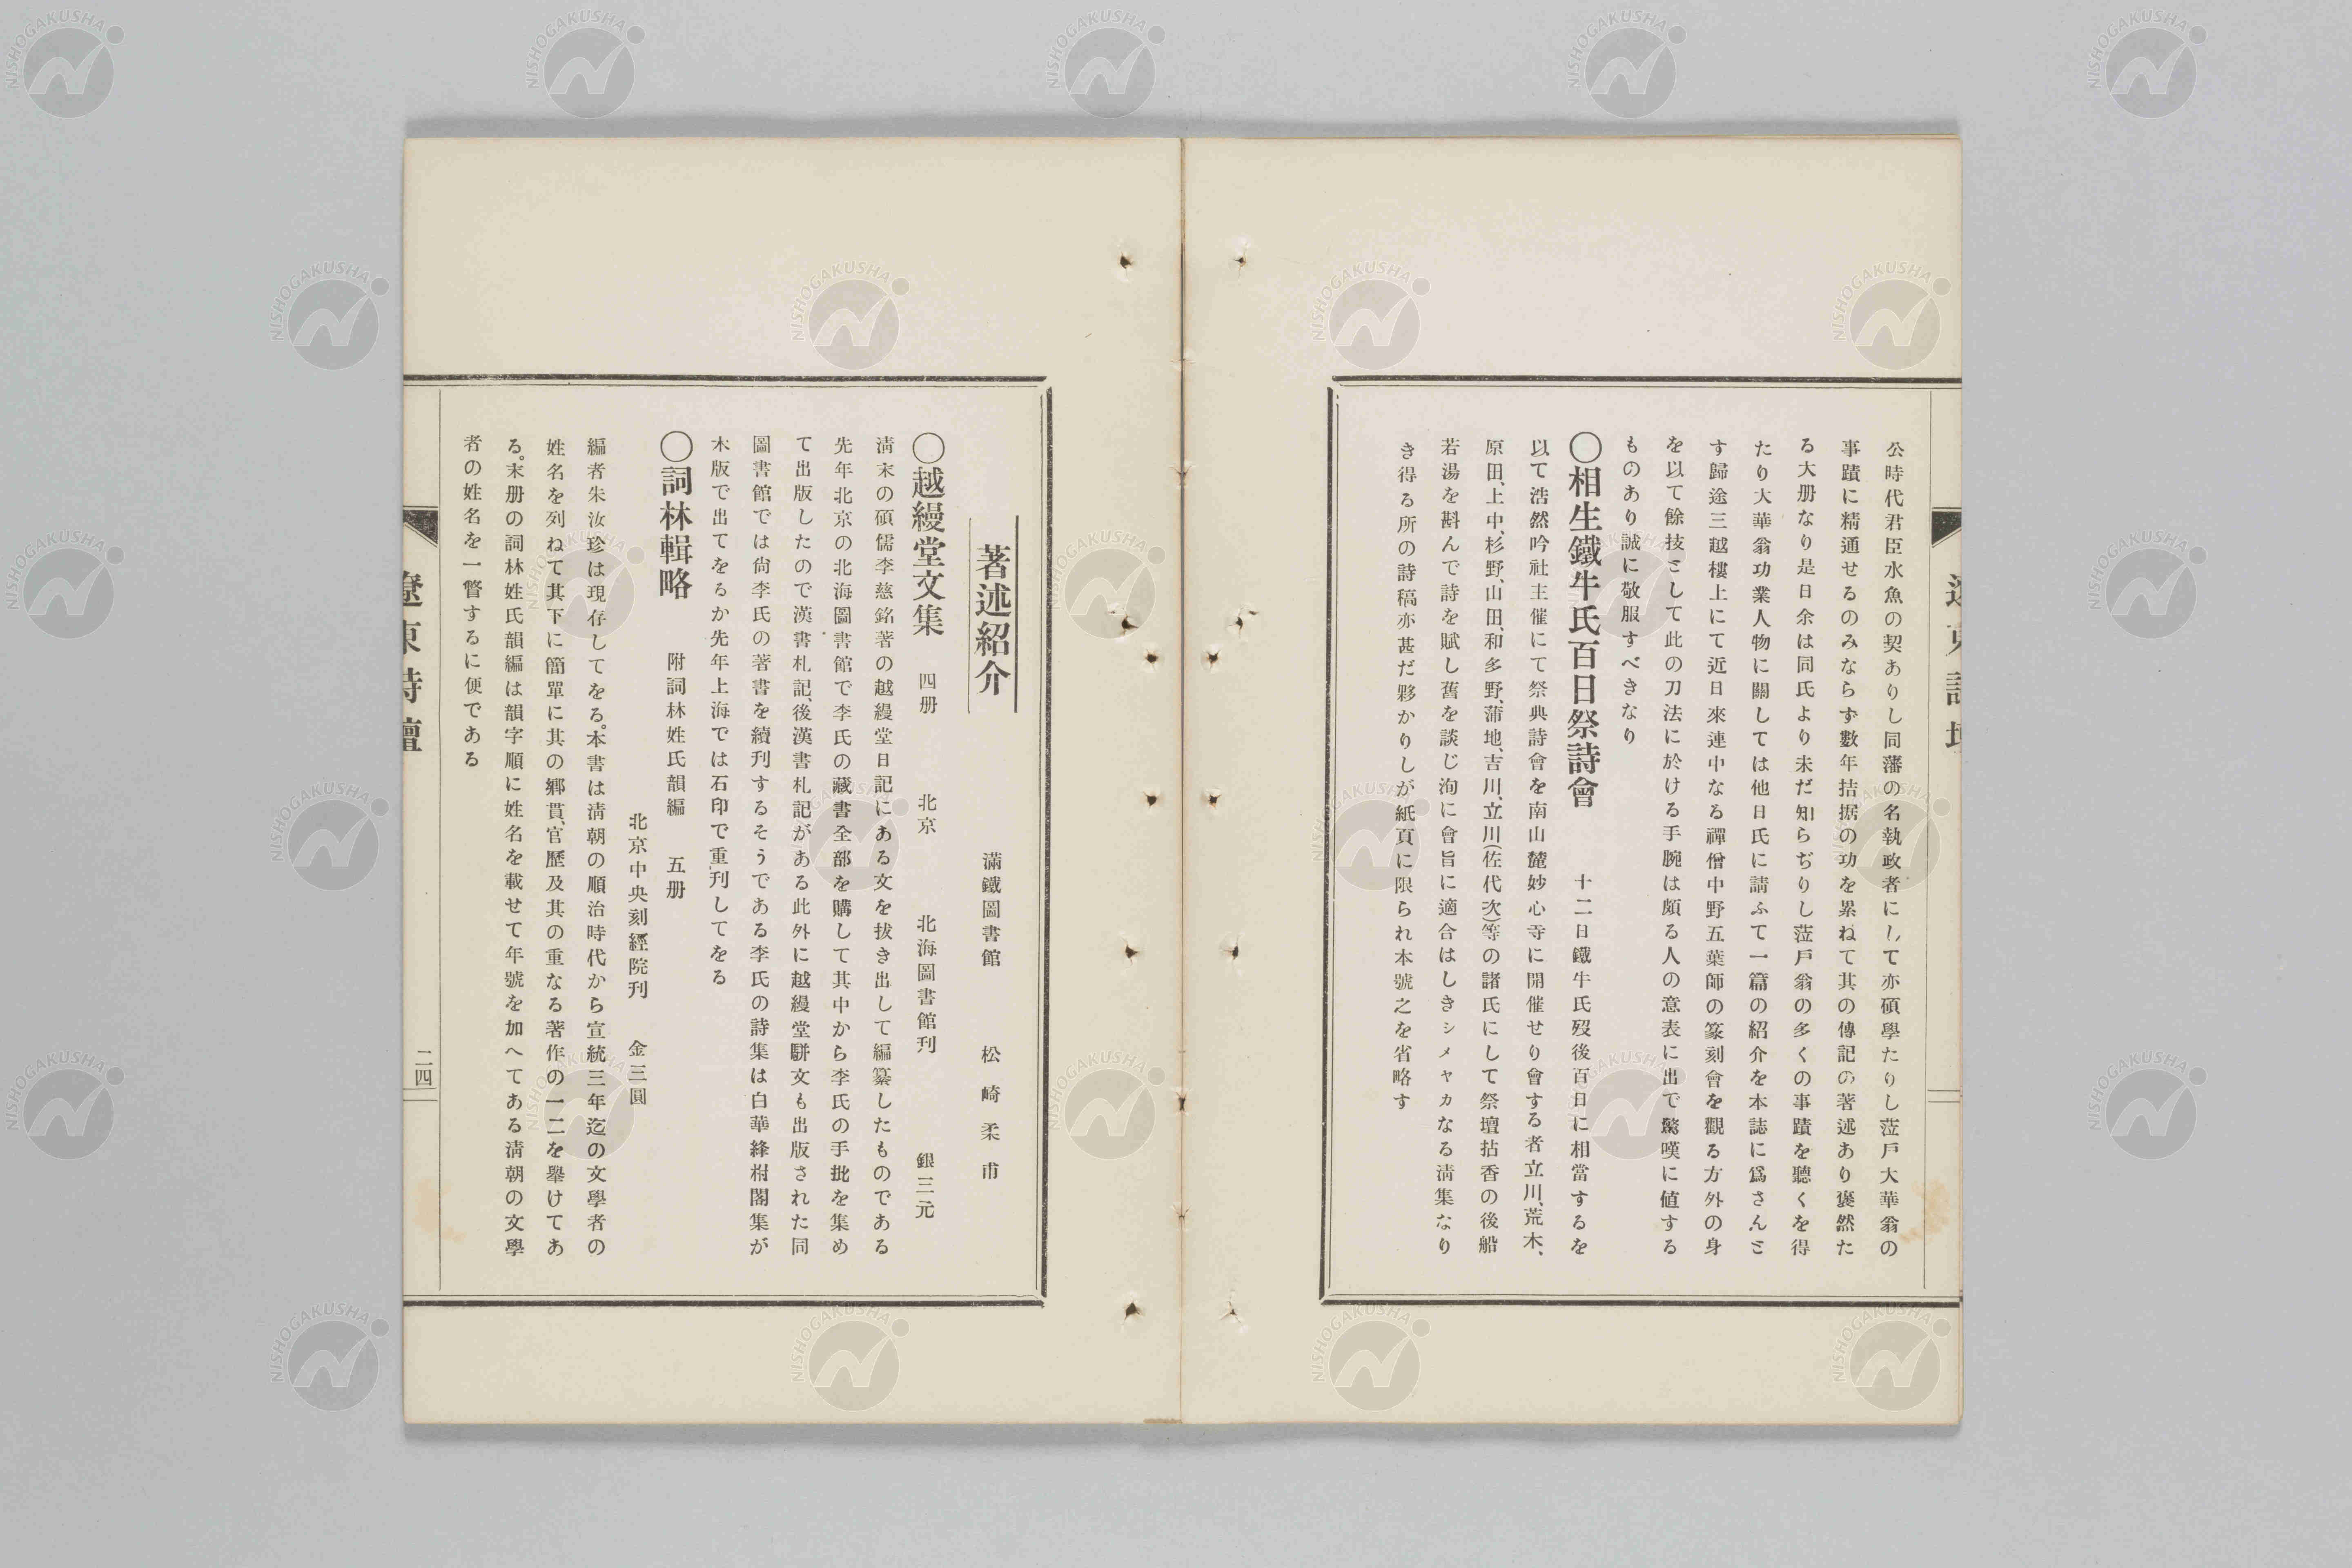 公時代君臣水魚の契ありし同藩の名執政者にして亦碩學たりし莅戸大華翁の
事蹟に精通せるのみならず數年拮据の功を累ねて其の傳記の著述あり褒然た
る大册なり是日余は同氏より未だ知らぢりし莅戸翁の多くの事蹟を聽くを得
たり大華翁功業人物に關しては他日氏に請ふて一篇の紹介を本誌に爲さんと
す歸途三越樓上にて近日來連中なる禪僧中野五葉師の篆刻會を觀る方外の身
を以て餘技として此の刀法に於ける手腕は頗る人の意表に出で驚嘆に値する
ものあり誠に敬服すべきなり
〇相生鐵牛氏百日祭詩會 十二日鐵牛氏歿後百日に相當するを
以て浩然吟社主催にて祭典詩會を南山麓妙心寺に開催せり會する者立川、荒木、
原田、上中、杉野、山田、和多野、蒲地、吉川、立川(佐代次)等の諸氏にして祭壇拈香の後船
若湯を斟んで詩を賦し舊を談じ洵に會旨に適合はしきシメヤカなる淸集なり
き得る所の詩稿亦甚だ夥かりしが紙頁に限られ本號之を省略す
著述紹介
滿鐵圖書館 松崎柔甫
〇越縵堂文集 四册 北京 北海圖書館刊 銀三元
淸末の碩儒李慈銘著の越縵堂日記にある文を拔き出して編纂したものである
先年北京の北海圖書館で李氏の藏書全部を購して其中から李氏の手批を集め
て出版したので漢書札記、後漢書札記がある此外に越縵堂駢文も出版された同
圖書館では尙李氏の著書を續刊するそうである李氏の詩集は白華絳柎閣集が
木版で出てをるか先年上海では石印で重刋してをる
〇詞林輯略 附詞林姓氏韻編 五册
北京中央刻經院刋 金三圓
編者朱汝珍は現存してをる。本書は淸朝の順治時代から宣統三年迄の文學者の
姓名を列ねて其下に簡單に其の鄕貫、官歷及其の重なる著作の一二を擧けてあ
る。末册の詞林姓氏韻編は韻字順に姓名を載せて年號を加へてある淸朝の文學
者の姓名を一瞥するに便である
遼東詩壇
二四
NISHOGAKUSHA